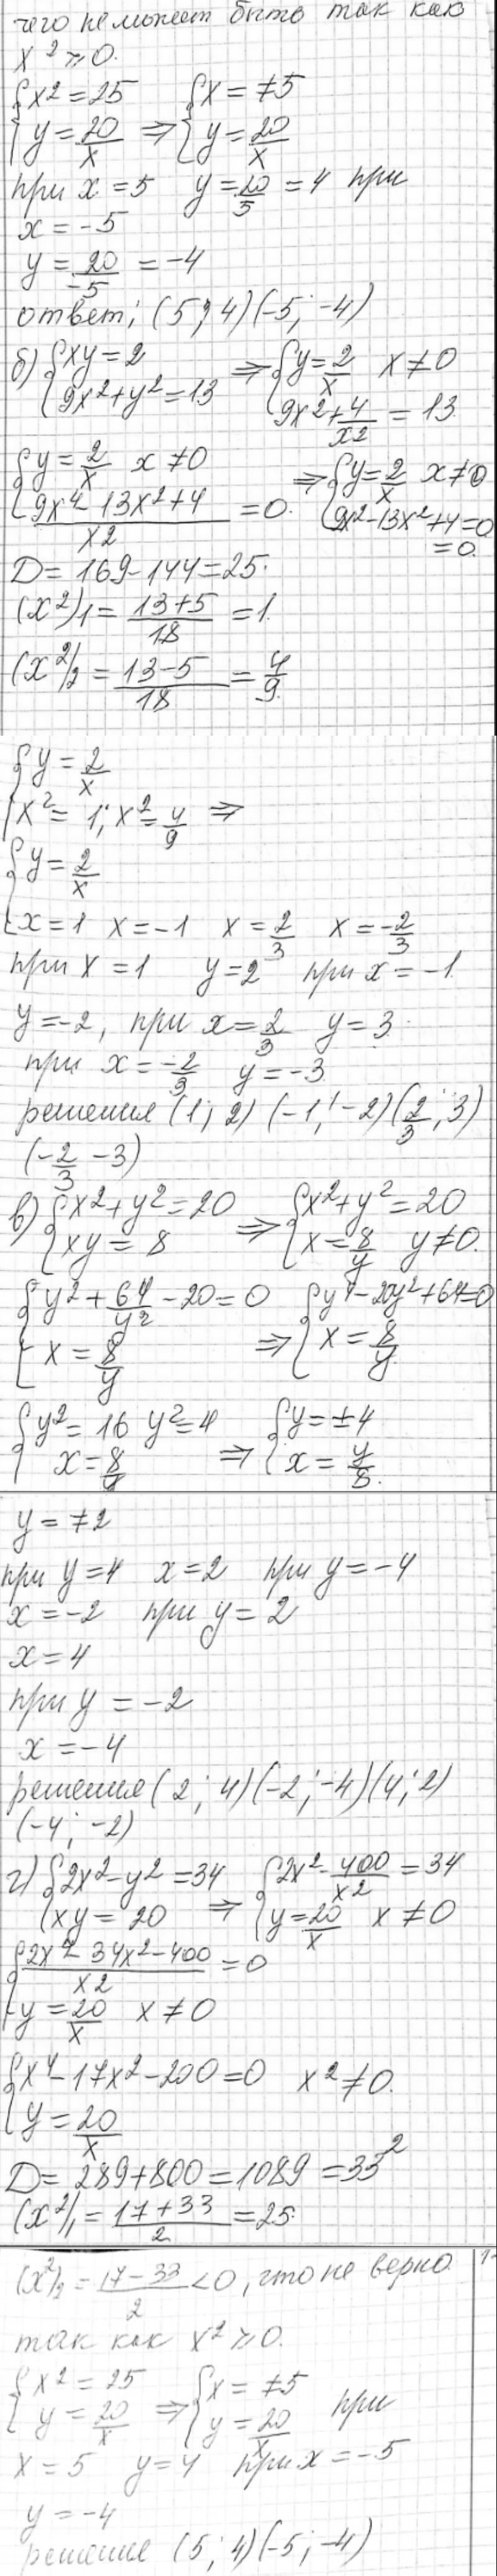 чего не может быть так как
x² ≥ 0.
{x² = 25 {x = ±5
{y = 20/x ⇒ {y = 20/x
при x = 5 y = 20/5 = 4 при
x = -5
y = 20/-5 = -4
ответ: (5; 4) (-5; -4)
б) {xy = 2 ⇒ {y = 2/x x ≠ 0
{9x² + y² = 13 {9x² + 4/x2 = 13
{y = 2/x x ≠ 0 ⇒ {y = 2/x x ≠ 0
{9x⁴ - 13x² + 4/x2 = 0. {9x² - 13x² + 4 = 0
= 0.
D = 169 - 144 = 25.
(x²)1 = 13+5/18 = 1.
(x²)2 = 13-5/18 = 4/9
{y = 2/x
{x² = 1; x² = 4/9 ⇒
{y = 2/x
{x = 1 x = -1 x = 2/3 x = -2/3
при x = 1 y = 2 при x = -1
y = -2, при x = 2/3 y = 3
при x = -2/3 y = -3
решения (1; 2) (-1; -2) (2/3; 3)
(-2/3 -3)
в) {x² + y² = 20 ⇒ {x² + y² = 20
{xy = 8 {x = 8/y y ≠ 0.
{y² + 64/y² - 20 = 0 {y⁴ - 20y² + 64 = 0
{x = 8/y ⇒ {x = 8/y
{y² = 16 y² = 4 {y = ±4
{x = 8/y ⇒ {x = y/8.
y = ±2
при y = 4 x = 2 при y = -4
x = -2 при y = 2
x = 4
при y = -2
x = -4
решения (2; 4) (-2; -4) (4; 2)
(-4; -2)
г) {2x² - y² = 34 {2x² - 400/x2 = 34
{xy = 20 ⇒ {y = 20/x x ≠ 0
{2x⁴ - 34x² - 400/x2 = 0
{y = 20/x x ≠ 0
{x⁴ - 17x² - 200 = 0 x² ≠ 0.
{y = 20/x
D = 289 + 800 = 1089 = 33²
(x²)1 = 17+33/2 = 25.
(x²)2 = 17-33/2 < 0, что не верно
так как x² ≥ 0.
{x² = 25 {x = ±5
{y = 20/x ⇒ {y = 20/x при
x = 5 y = 4 при x = -5
y = -4
решение (5; 4) (-5; -4)